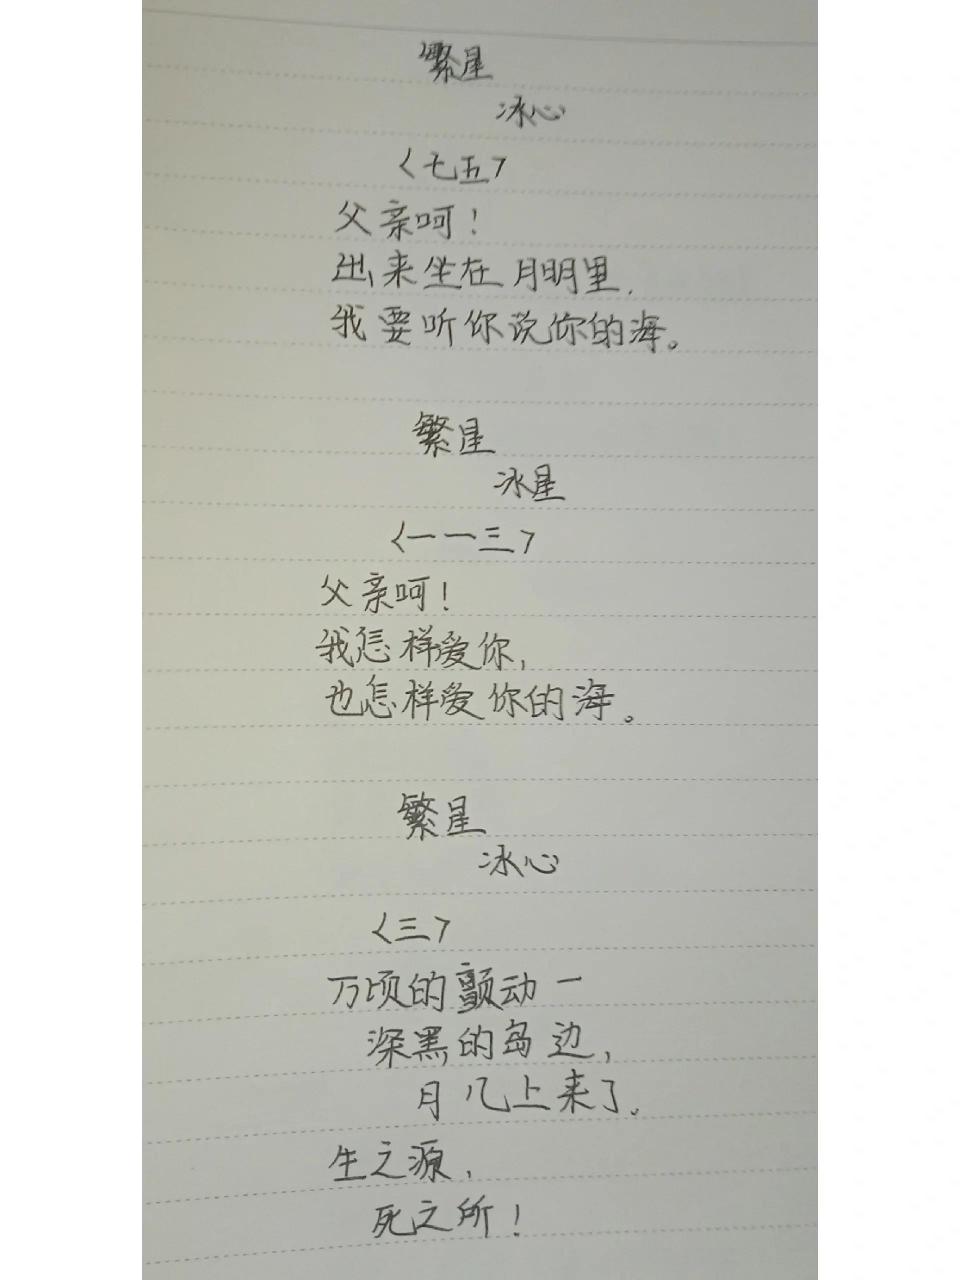 繁星
冰心
〈七五〉
父亲呵！
出来坐在月明里，
我要听你说你的海。
繁星
冰星
〈一一三〉
父亲呵！
我怎样爱你，
也怎样爱你的海。
繁星
冰心
〈三〉
万顷的颤动一
深黑的岛边，
月几上来了。
生之源，
死之所！